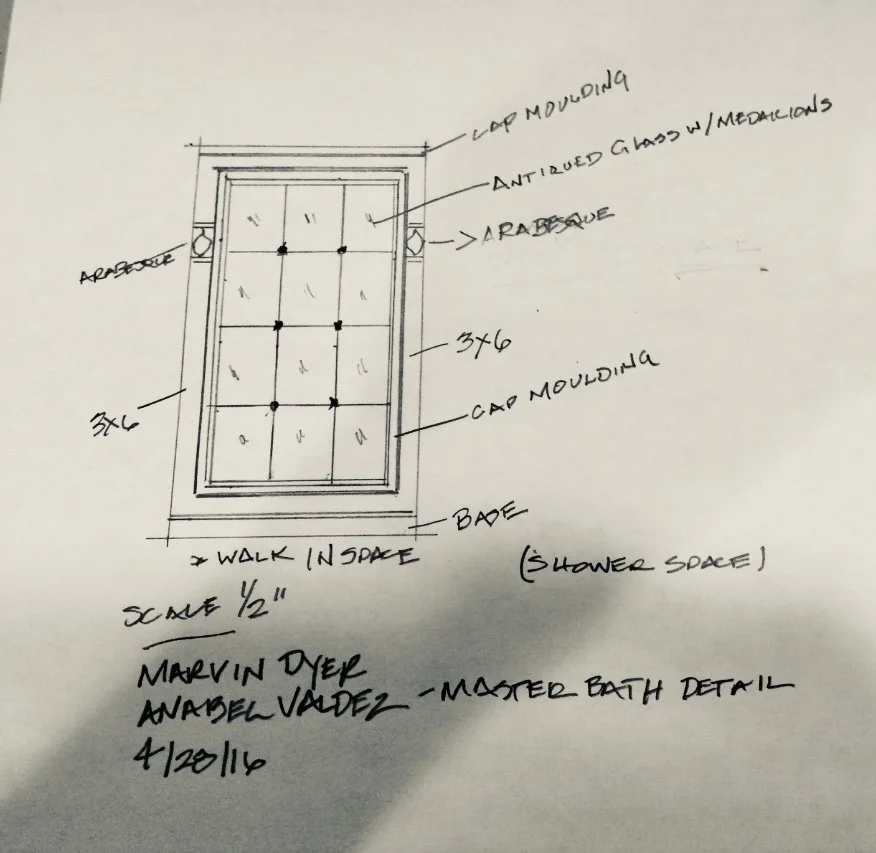 CAP MOULDING
ANTIQUED GLASS W/MEDALLIONS
ARABESQUE
ARABESQUE
3X6
CAP MOULDING
3X6
BASE
* WALK IN SPACE
(SHOWER SPACE)
SCALE 1/2"
MARVIN DYER
ANABEL VALDEZ - MASTER BATH DETAIL
4/28/16